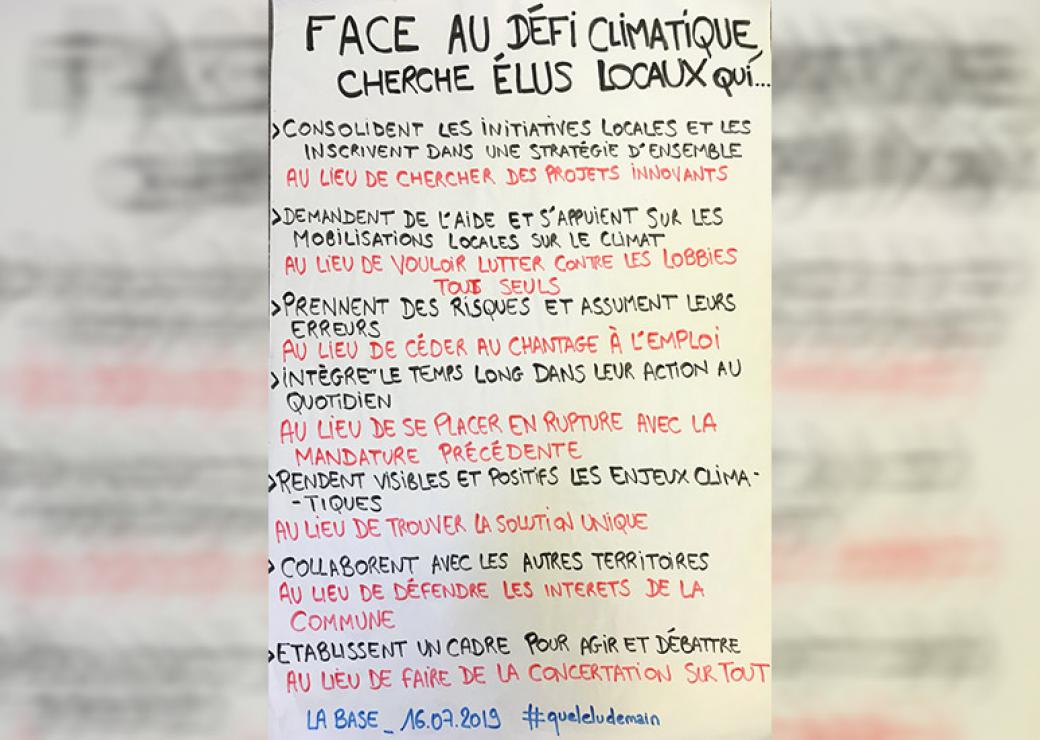 FACE AU DÉFI CLIMATIQUE,
CHERCHE ÉLUS LOCAUX qui...
>CONSOLIDENT LES INITIATIVES LOCALES ET LES
INSCRIVENT DANS UNE STRATÉGIE D'ENSEMBLE
AU LIEU DE CHERCHER DES PROJETS INNOVANTS
>DEMANDENT DE L'AIDE ET S'APPUIENT SUR LES
MOBILISATIONS LOCALES SUR LE CLIMAT
AU LIEU DE VOULOIR LUTTER CONTRE LES LOBBIES
TOUS SEULS
>PRENNENT DES RISQUES ET ASSUMENT LEURS
ERREURS
AU LIEU DE CÉDER AU CHANTAGE À L'EMPLOI
>INTÈGRE"LE TEMPS LONG DANS LEUR ACTION AU
QUOTIDIEN
AU LIEU DE SE PLACER EN RUPTURE AVEC LA
MANDATURE PRÉCÉDENTE
>RENDENT VISIBLES ET POSITIFS LES ENJEUX CLIMA-
-TIQUES
AU LIEU DE TROUVER LA SOLUTION UNIQUE
> COLLABORENT AVEC LES AUTRES TERRITOIRES
AU LIEU DE DÉFENDRE LES INTERETS DE LA
COMMUNE
>ETABLISSENT UN CADRE POUR AGIR ET DÉBATTRE
AU LIEU DE FAIRE DE LA CONCERTATION SUR TOUT
LA BASE_ 16.07.2019 #queleludemain